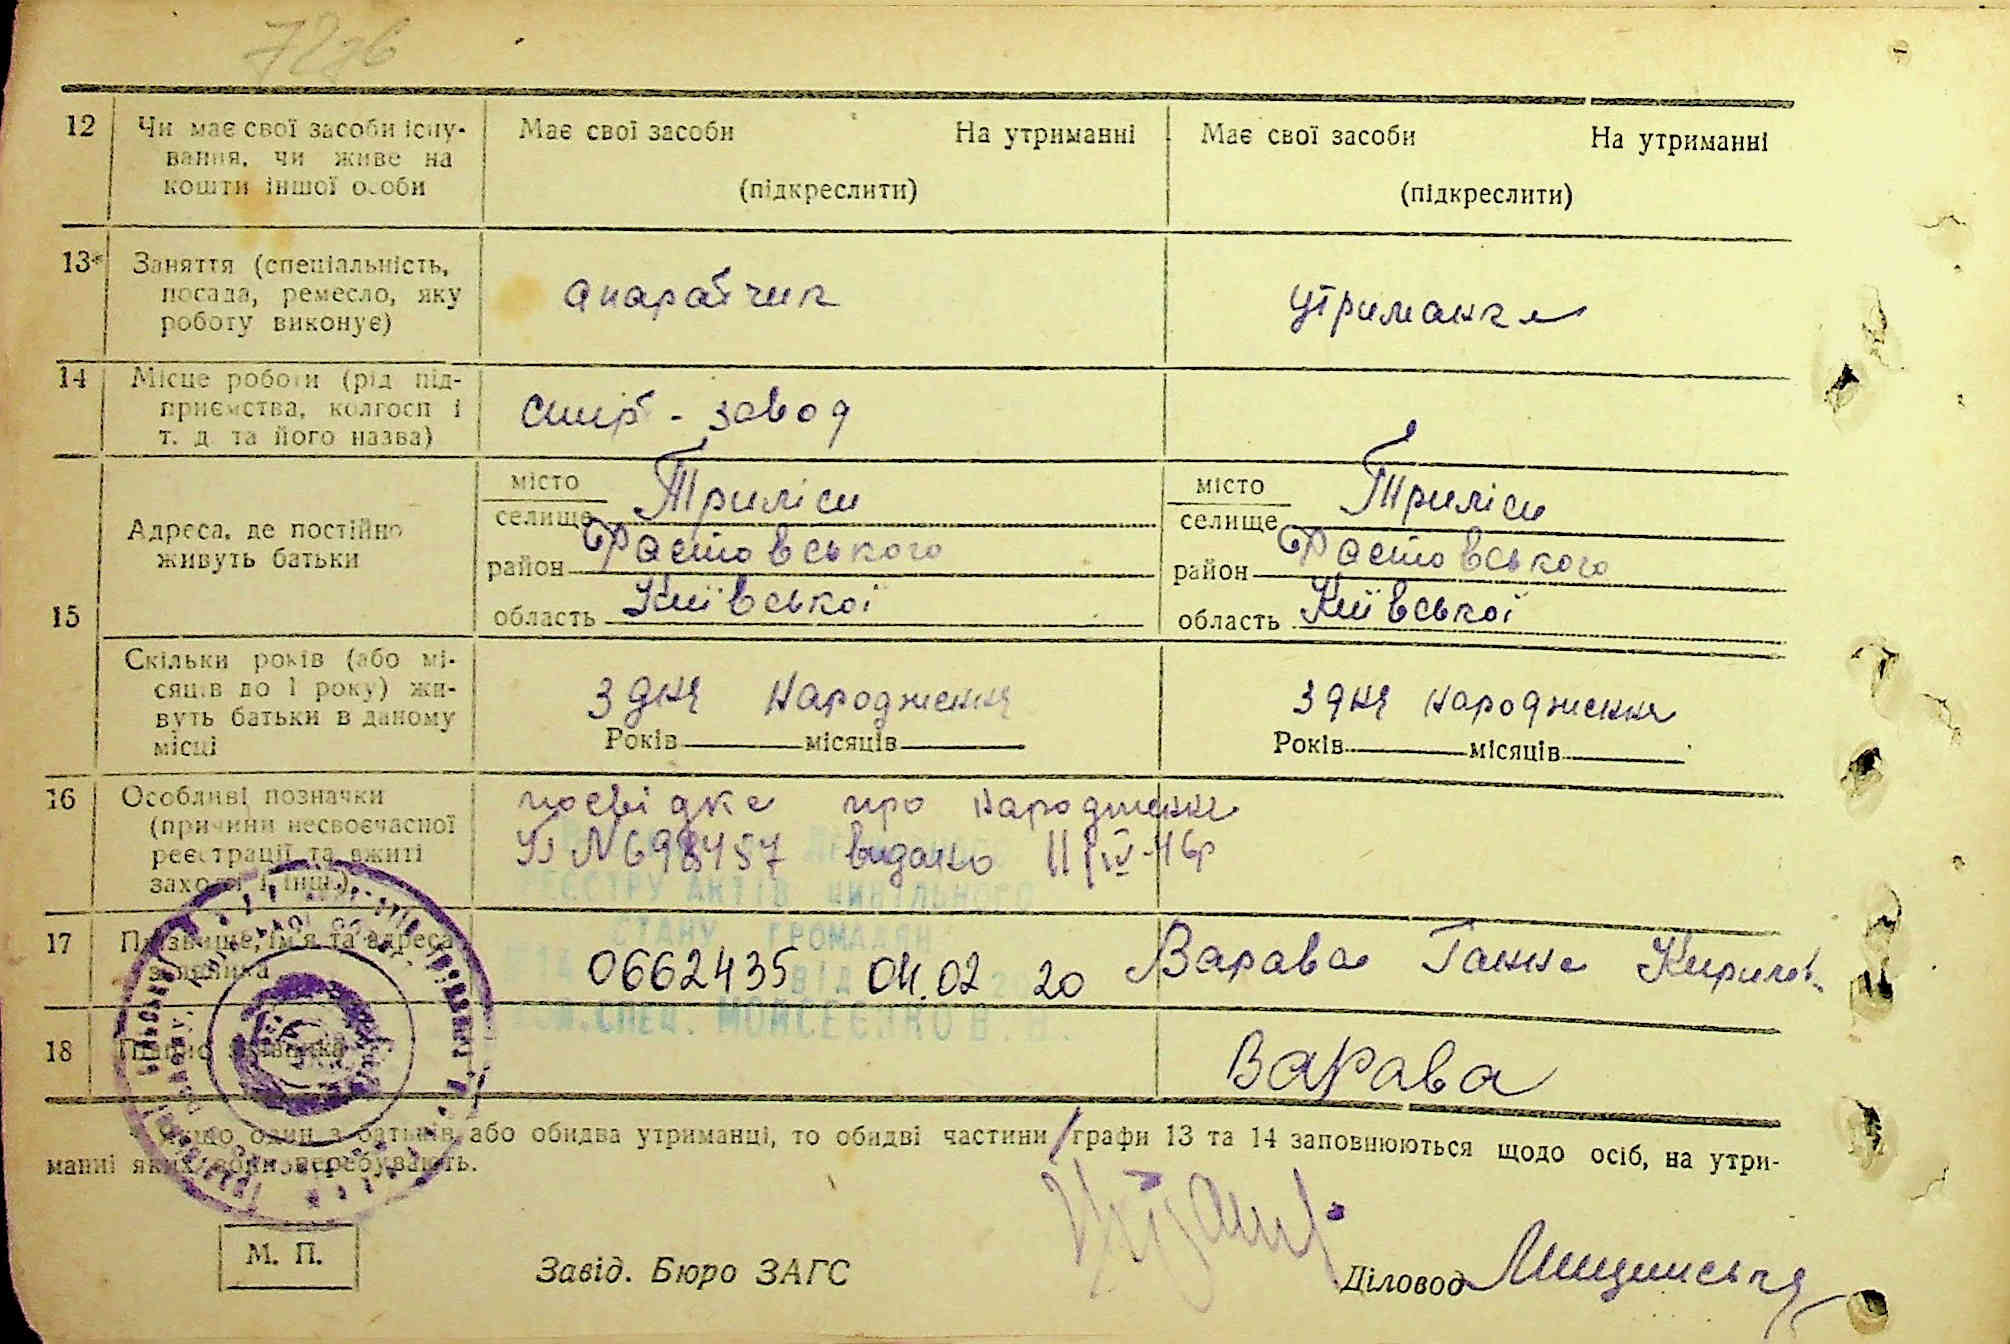 12 Чи має свої засоби існу- Має свої засоби На утриманні Має свої засоби На утриманні
вання, чи живе на
кошти іншої особи (підкреслити) (підкреслити)
13* Заняття (спеціальність,
посада, ремесло, яку апаратчик утриманка
роботу виконує)
14 Місце роботи (рід під-
приємства, колгосп і спирт-завод
т. д. та його назва)
місто Триліси місто Триліси
селище селище
Адреса, де постійно
живуть батьки район Фастовського район Фастовського
15 область Київської область Київської
Скільки років (або мі-
сяців до 1 року) жи- з дня народження з дня народження
вуть батьки в даному Років місяців Років місяців
місці
16 Особливі позначки посвідка про народження
(причини несвоєчасної
реєстрації та вжиті № 698457 видано 11/IV-46р
заходи і інш.)
РЕЄСТРУ АКТІВ ЦИВІЛЬНОГО
СТАНУ ГРОМАДЯН
17 Прізвище, ім'я та адреса 0662435 04.02 20 Варава Ганна Кирилов.
заявника ВІД
СПЕЦ. МОЙСЕЄНКО В. В.
18 Підпис заявника Варава
* Якщо один з батьків або обидва утриманці, то обидві частини графи 13 та 14 заповнюються щодо осіб, на утри-
манні яких вони перебувають.
М. П.
Завід. Бюро ЗАГС Діловод